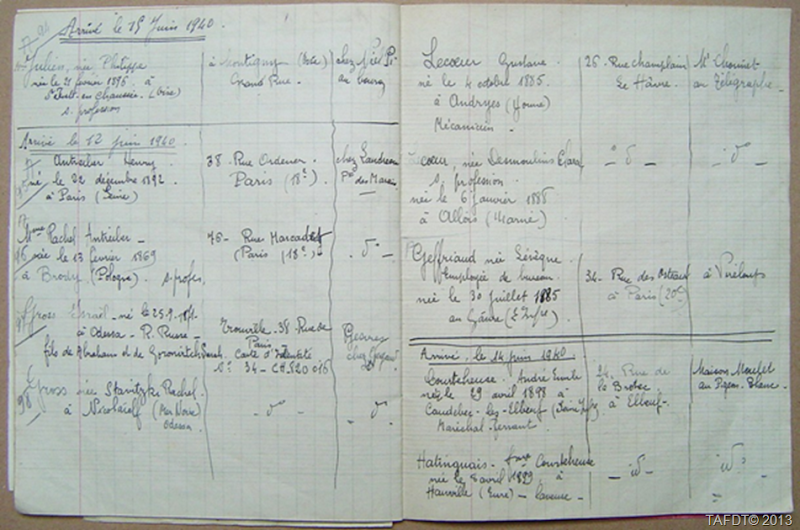 Arrivé le 15 Juin 1940.
Julien, née Philippe
née le 21 février 1896 à
St Just-en-Chaussée. (Oise)
s. profession
à Montigny (Oise)
Grand Rue.
au bourg
Arrivé le 12 juin 1940
Antreiber Henry.
né le 22 décembre 1892
à Paris (Seine)
38 - Rue Ordener.
Paris (18e)
chez Landreau
Pte des Marais
Mme Rachel Antreiber -
née le 13 février 1869
à Brody (Pologne) s. profes.
76 - Rue Marcadet
(Paris (18e))
- do -
Gross Israël - né le 25-9-
à Odessa - R. Russe -
fils de Abraham et de
Trouville. 38 Rue de
Paris
Carte d'Identité
No 34 - CH 520 016
Gesvres
chez
98
Gross née Stavitzki Rachel.
à Nicolaieff (Mer Noire)
Odessa.
- do -
- do -
Lecoeur Gustave
né le 4 octobre 1885
à Andryes (Yonne)
Mécanicien -
26 - Rue Champlain
Le Hâvre.
au Télégraphe -
Lecoeur, née Desmoulins Clara
s. profession
née le 6 Janvier 1888
à (Marne)
- do -
- do -
Geffriaud née Lévêque
Employée de bureau
née le 30 juillet 1885
au Gâvre (L. Infre)
34 - Rue des
à Paris (20e)
à Viréloup
Arrivé, le 14 juin 1940
Courteheuse. André Emile
né le 29 avril 1898 à
Caudebec-les-Elbeuf (Seine Infre)
Maréchal-ferrant
24. Rue de
la
à Elbeuf -
Maison
au Pigeon-Blanc -
Hatinguais - fme Courteheuse
née le 8 avril 1899 à
Hauville (Eure) -
- id -
- id -
TAFDT© 2013